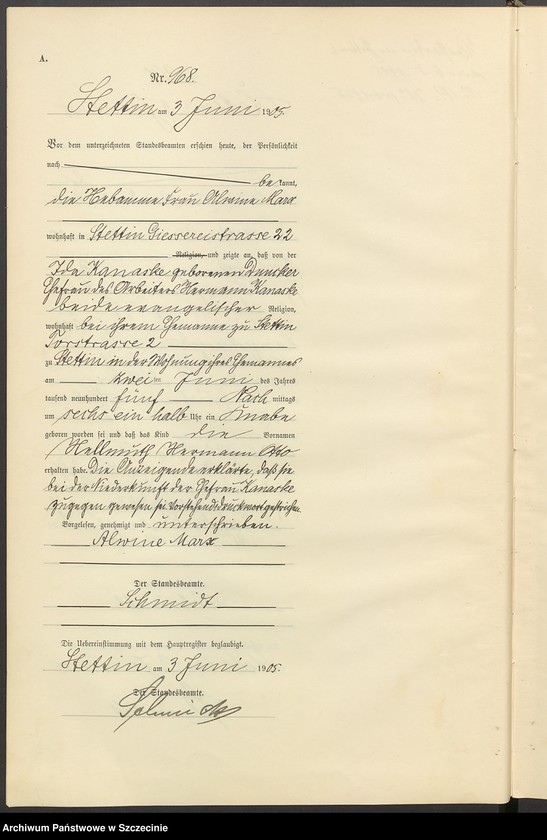 A.
Nr. 968.
Stettin am 3 Juni 1905.
Vor dem unterzeichneten Standesbeamten erschien heute, der Persönlichkeit
nach
bekannt,
die Hebamme Frau Alwine Marx
wohnhaft in Stettin Giessereistrasse 22
Religion, und zeigte an, daß von der
Ida Kanaske geborenen Duncker
Ehefrau des Arbeiters Hermann Kanaske
beide evangelischer Religion,
wohnhaft bei ihrem Ehemanne zu Stettin
Torstrasse 2
zu Stettin in der Wohnung ihres Ehemannes
am zwei ten Juni des Jahres
tausend neunhundert fünf Nach mittags
um sechs ein halb Uhr ein Knabe
geboren worden sei und daß das Kind die Vornamen
Hellmuth Hermann Otto
erhalten habe. Die Anzeigende erklärte, daß sie
bei der Niederkunft der Ehefrau Kanaske
zugegen gewesen sei. Vorstehend 1 Druckwort gestrichen
Vorgelesen, genehmigt und unterschrieben.
Alwine Marx
Der Standesbeamte.
Schmidt
Die Uebereinstimmung mit dem Hauptregister beglaubigt.
Stettin am 3 Juni 1905.
Der Standesbeamte.
Schmidt
Archiwum Państwowe w Szczecinie